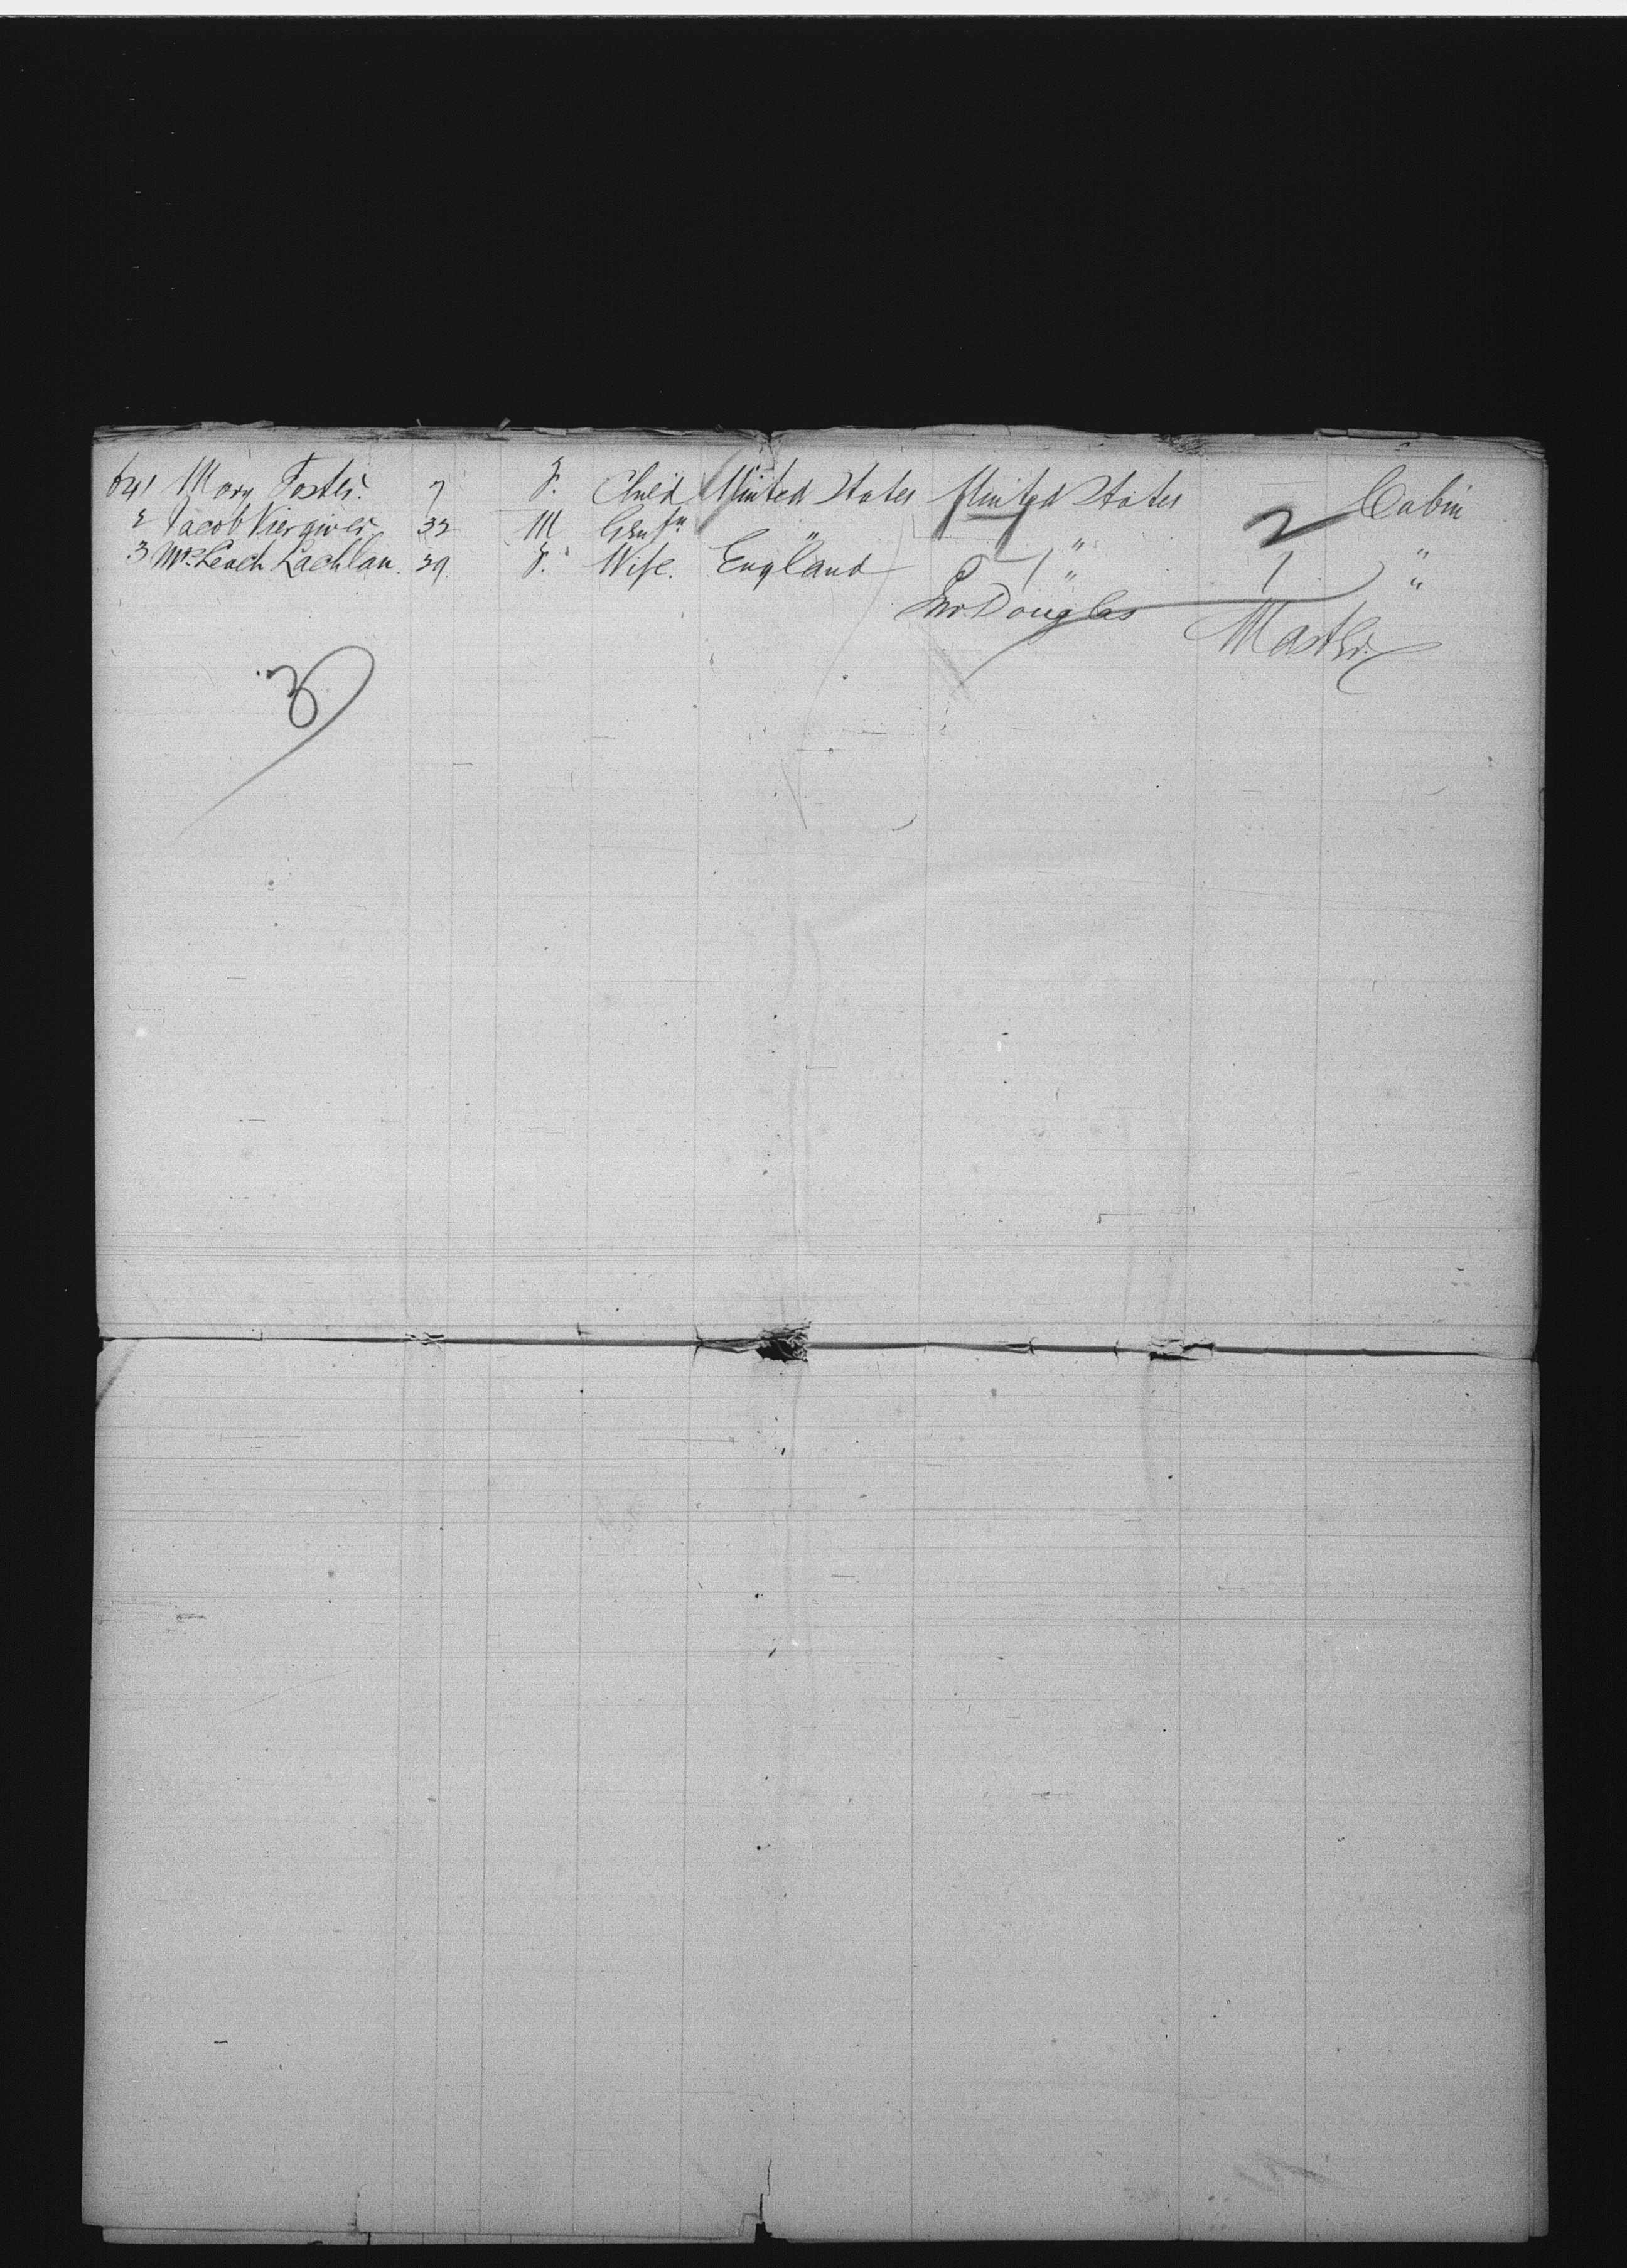 641 Mary Foster. 7 F. Child United States United States Cabin
2 Jacob 32 M Gentn " " 2 "
3 Mrs Leach Lachlan. 39 F. Wife. England " 1 "
Douglas
Master
3